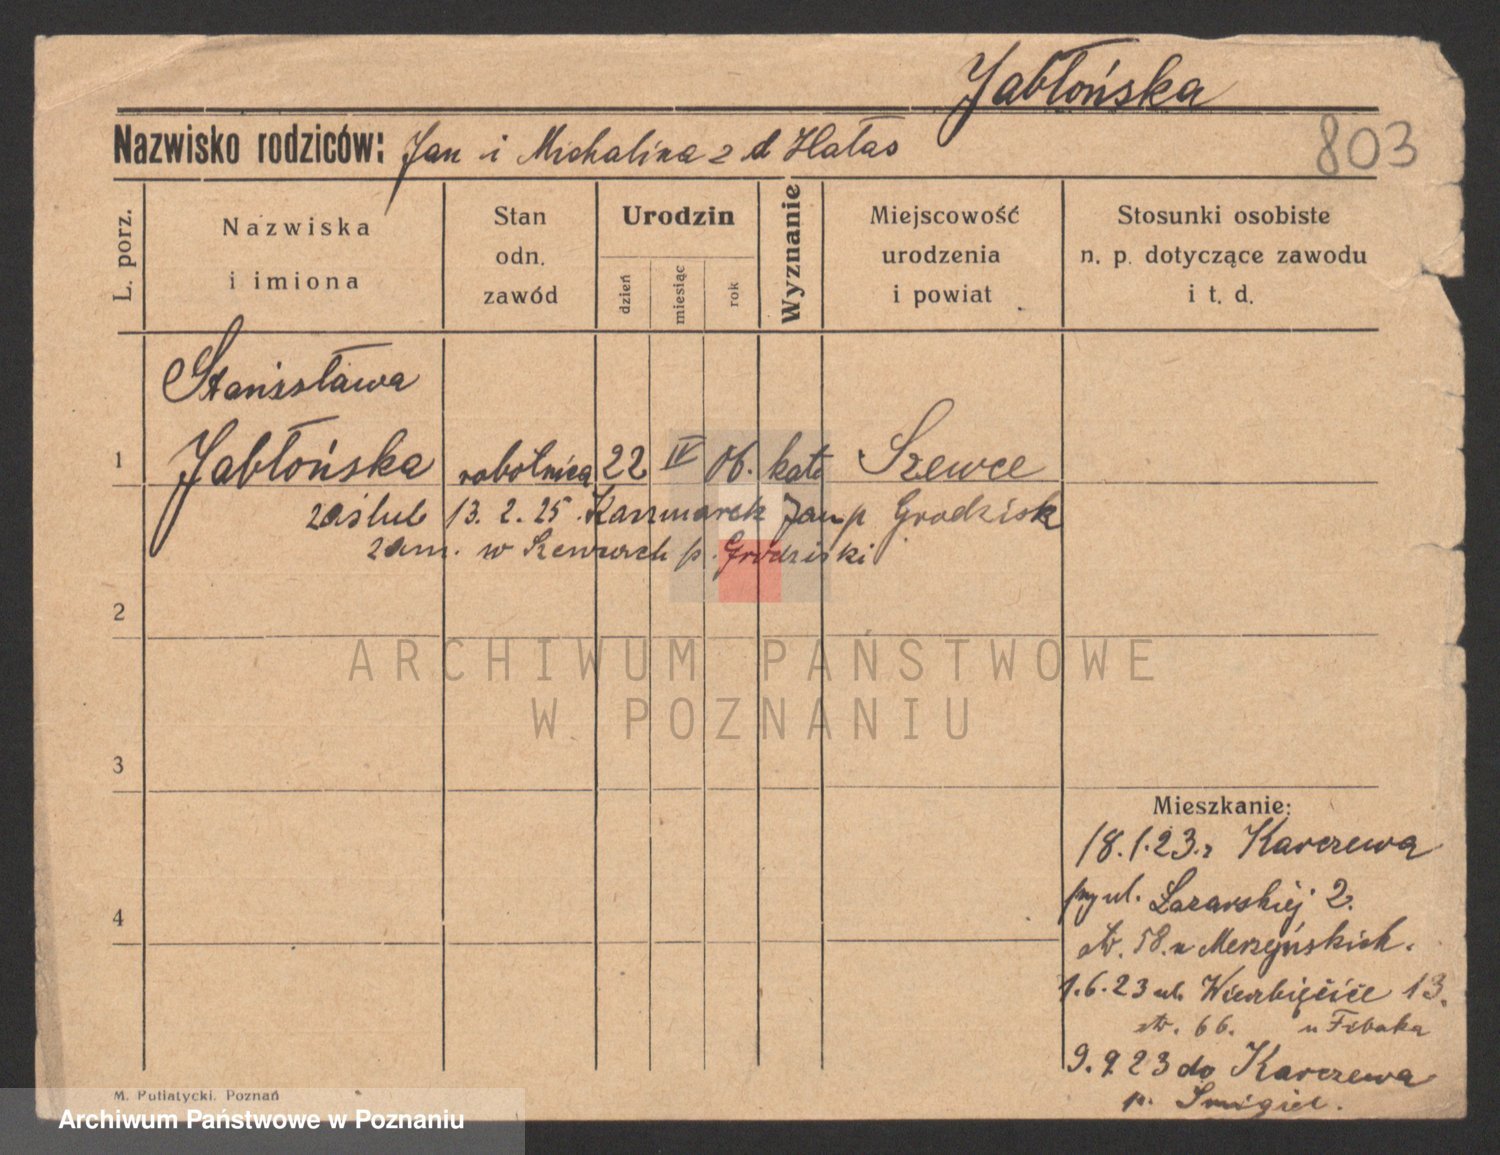 Jabłońska
803
Nazwisko rodziców: Jan i Michalina z d Hałas
L. porz.
Nazwiska
i imiona
Stan
odn.
zawód
Urodzin
dzień
miesiąc
rok
Wyznanie
Miejscowość
urodzenia
i powiat
Stosunki osobiste
n. p. dotyczące zawodu
i t. d.
Stanisława
1 Jabłońska robotnica 22 IV 06. kato Szewce
zaślub 13. 2. 25. Kaczmarek Jan p Grodzisk
zam. w Szewcach p. Grodziski
2
ARCHIWUM PAŃSTWOWE
W POZNANIU
3
4
Mieszkanie:
18.1.23. z Karczewa
przy ul. Łazarskiej 2.
str. 58. u
1.6.23 ul. Wierzbięcice 13.
str. 66. u
9.9.23 do Karczewa
p. Śmigiel.
M. Putiatycki, Poznań
Archiwum Państwowe w Poznaniu